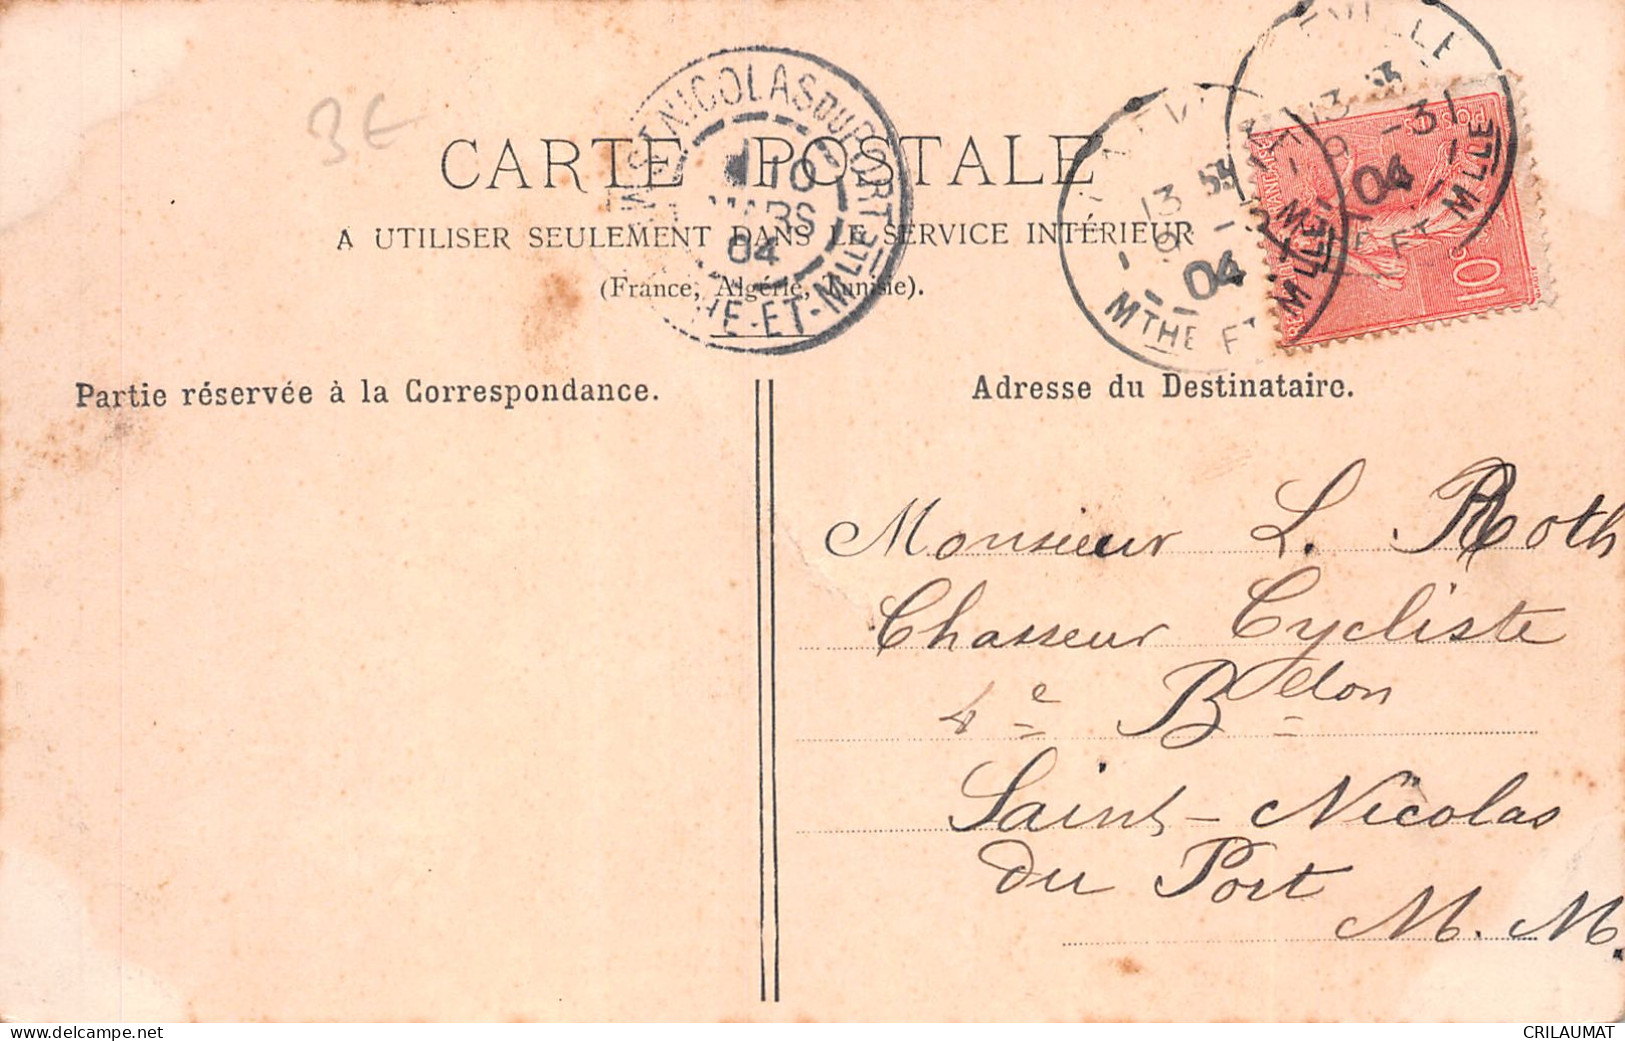 3€
CARTE POSTALE
A UTILISER SEULEMENT DANS LE SERVICE INTÉRIEUR
(France, Algérie, Tunisie).
ST NICOLAS DU PORT
10
MARS
04
MTHE-ET-MLLE
13
9 -3
04
MTHE ET MLLE
13
9 -3
04
ET MLLE
POSTES
10c
Partie réservée à la Correspondance.
Adresse du Destinataire.
Monsieur L. Roth
Chasseur Cycliste
4e Bdon
Saint-Nicolas
du Port
M. M.
CRILAUMAT